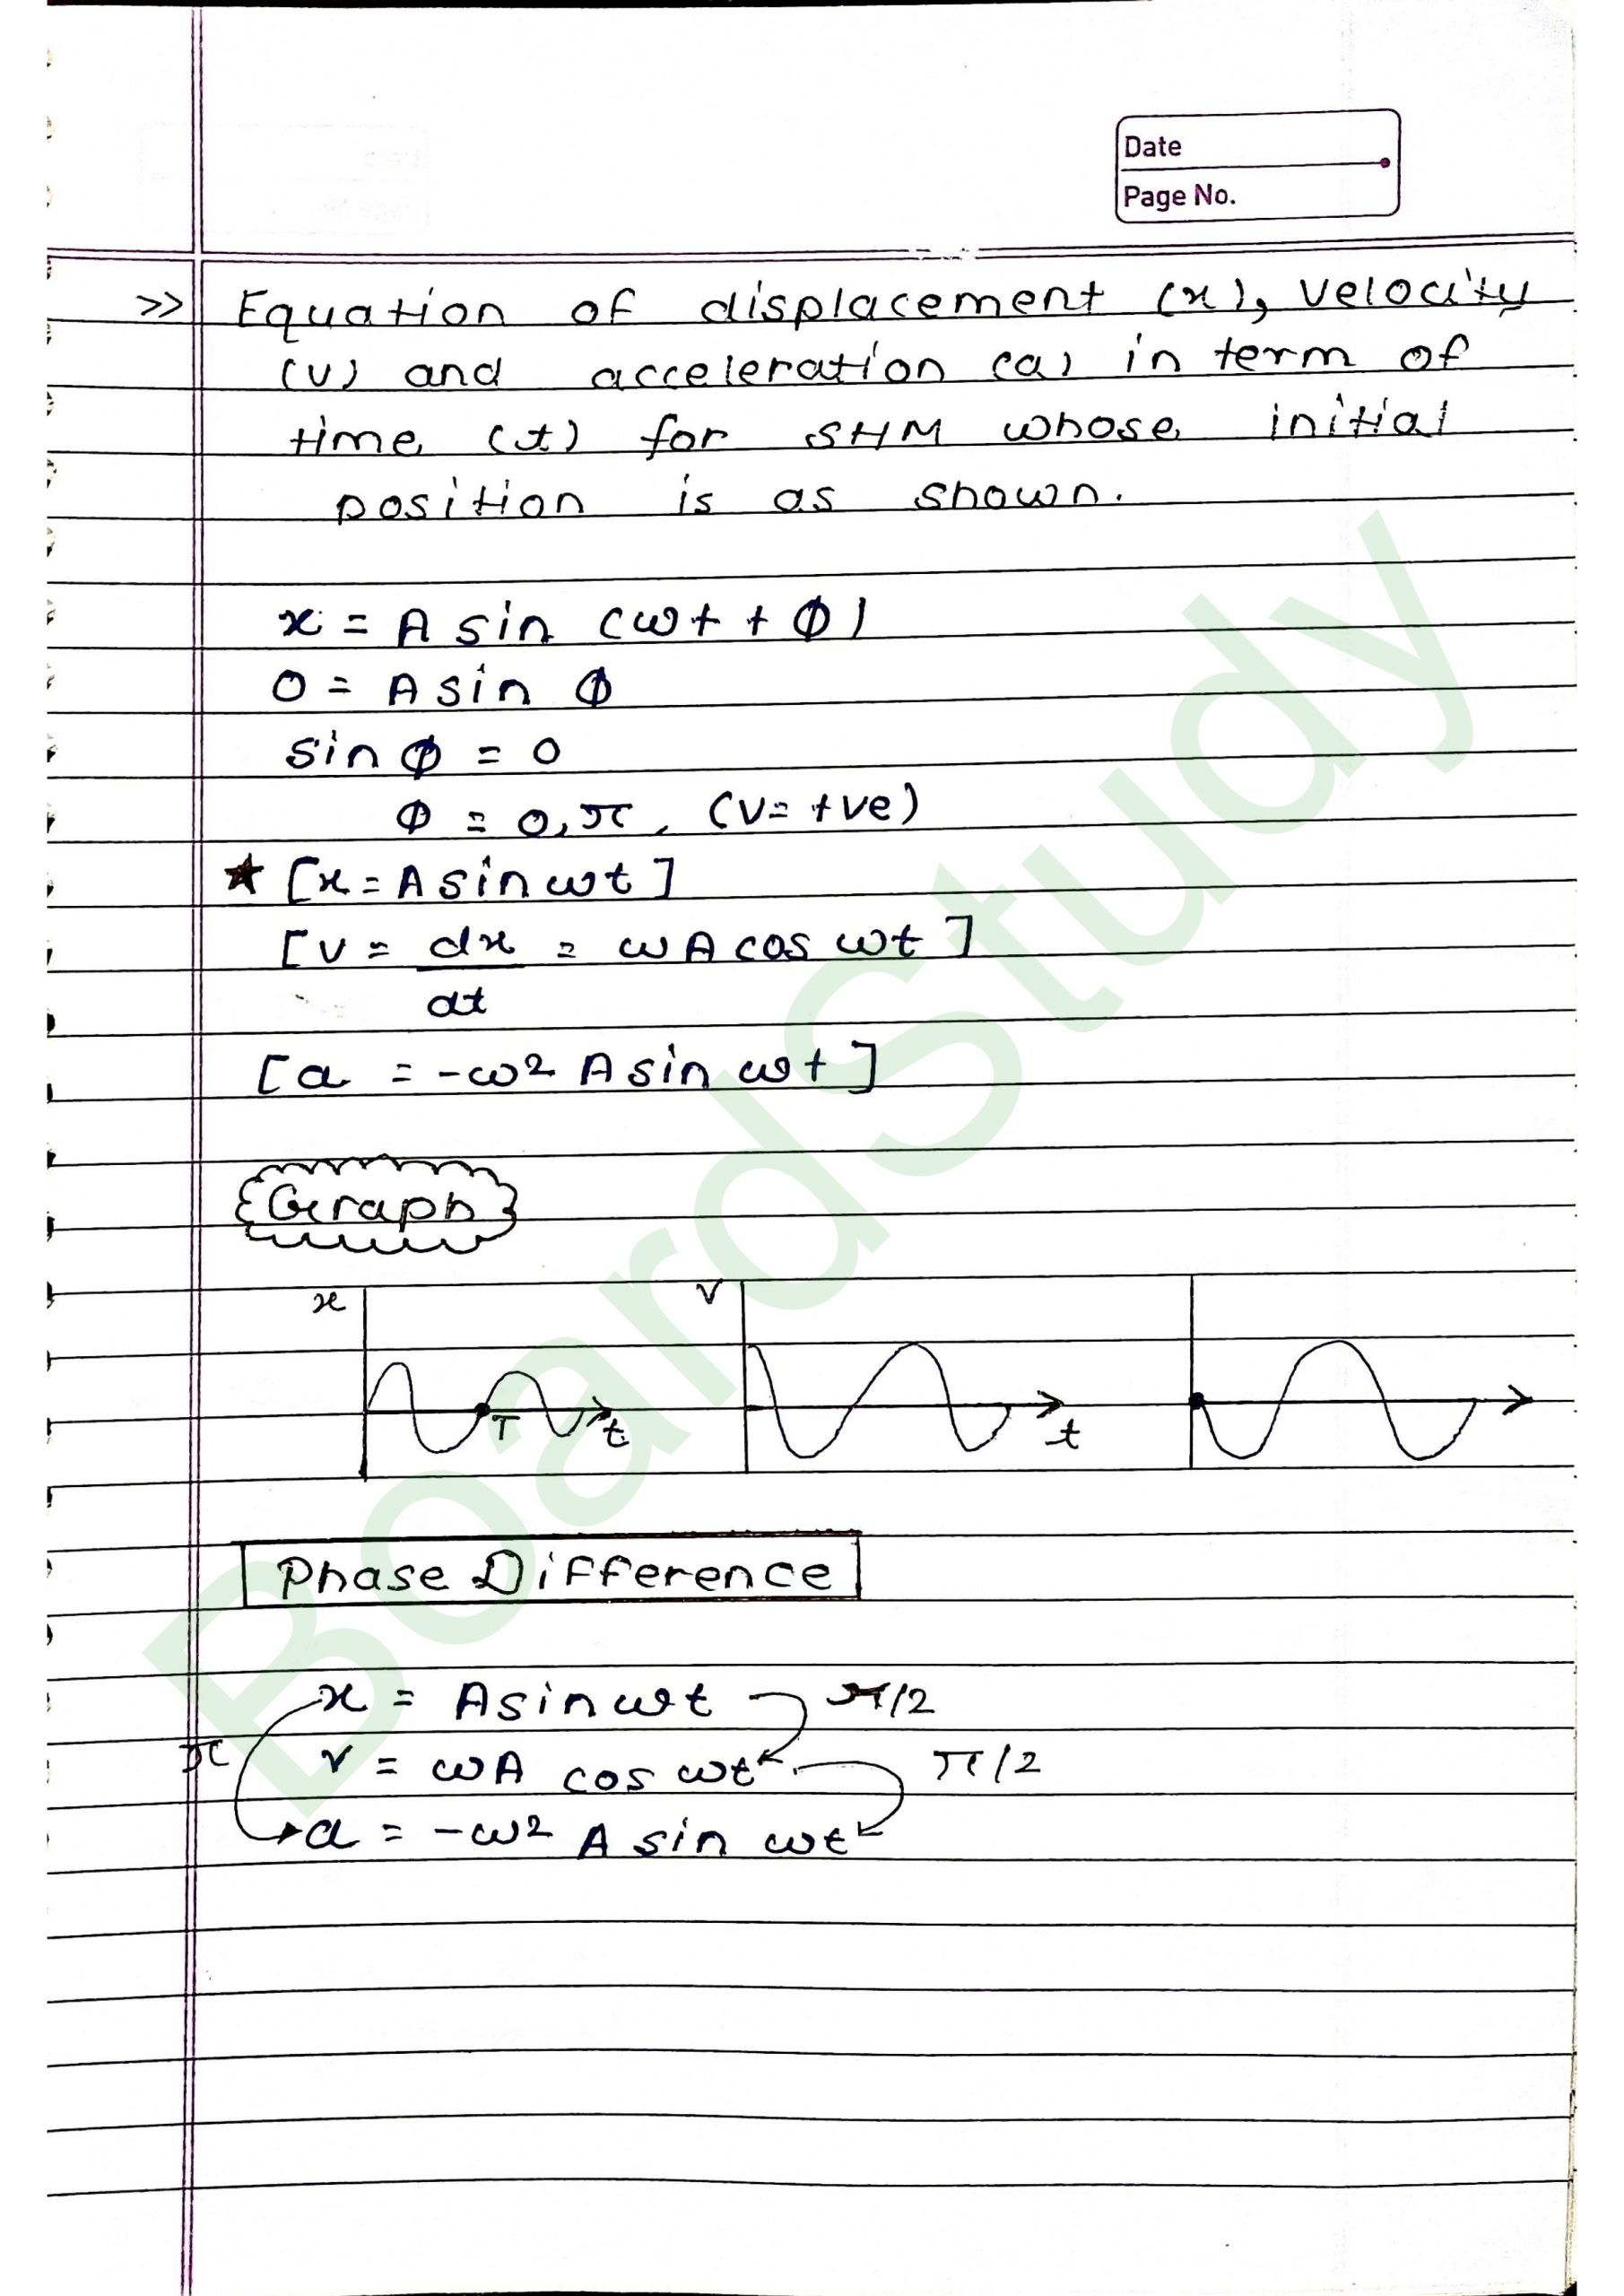 Date
Page No.
>> Equation of displacement (x), velocity
(v) and acceleration (a) in term of
time (t) for SHM whose initial
position is as shown.
x = A sin (ωt + Φ)
0 = A sin Φ
sin Φ = 0
Φ = 0, π, (v = +ve)
★ [x = A sin ωt]
[v = dx/dt = ωA cos ωt]
[a = -ω² A sin ωt]
Graph
x v
T t t
Phase Difference
x = A sin ωt π/2
π v = ωA cos ωt π/2
a = -ω² A sin ωt
BoardStudy